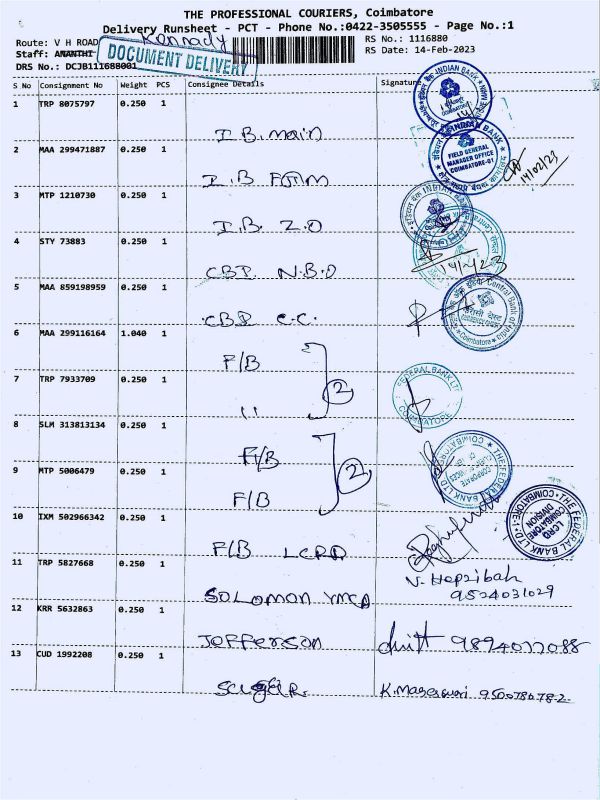 THE PROFESSIONAL COURIERS, Coimbatore
Delivery Runsheet - PCT - Phone No.:0422-3505555 - Page No.:1
Route: V H ROAD Kennady RS No.: 1116880
Staff: ANANTHI DOCUMENT DELIVERY RS Date: 14-Feb-2023
DRS No.: DCJB111688001
S No Consignment No Weight PCS Consignee Details Signature
1 TRP 8075797 0.250 1
I.B. main
2 MAA 299471887 0.250 1
I.B FGM
FIELD GENERAL
MANAGER OFFICE
COIMBATORE-01
14/02/23
3 MTP 1210730 0.250 1
I.B. Z.O
INDIAN BANK
4 STY 73883 0.250 1
CBI. N.B.O
14/2/23
5 MAA 859198959 0.250 1
CBI C.C.
Central Bank of India
Coimbatore
6 MAA 299116164 1.040 1
F/B
2
7 TRP 7933709 0.250 1
"
FEDERAL BANK LTD
COIMBATORE
8 SLM 313813134 0.250 1
F/B
2
9 MTP 5006479 0.250 1
F/B
THE FEDERAL BANK LTD
COIMBATORE
10 IXM 502966342 0.250 1
F/B LCRD
THE FEDERAL BANK LTD
COIMBATORE-1
LCRD
COIMBATORE
DIVISION
11 TRP 5827668 0.250 1
SOLOMON YMCA
V. Hepzibah
9524031029
12 KRR 5632863 0.250 1
Jefferson
9894077088
13 CUD 1992208 0.250 1
K. Mageswari 9500780782